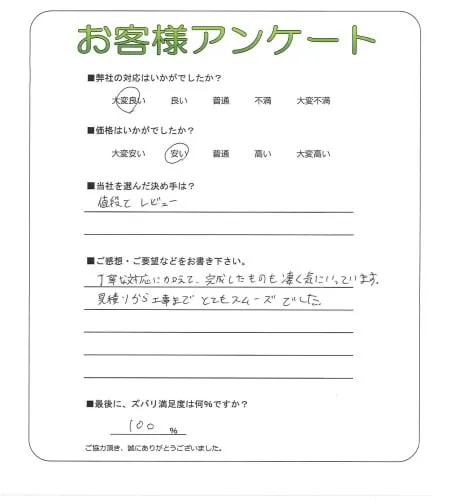 お客様アンケート
■弊社の対応はいかがでしたか？
大変良い 良い 普通 不満 大変不満
■価格はいかがでしたか？
大変安い 安い 普通 高い 大変高い
■当社を選んだ決め手は？
値段と レビュー
■ご感想・ご要望などをお書き下さい。
丁寧な対応に加えて、完成したものも凄く気にいっています。
見積りから工事まで とてもスムーズ でした
■最後に、ズバリ満足度は何%ですか？
100 %
ご協力頂き、誠にありがとうございました。